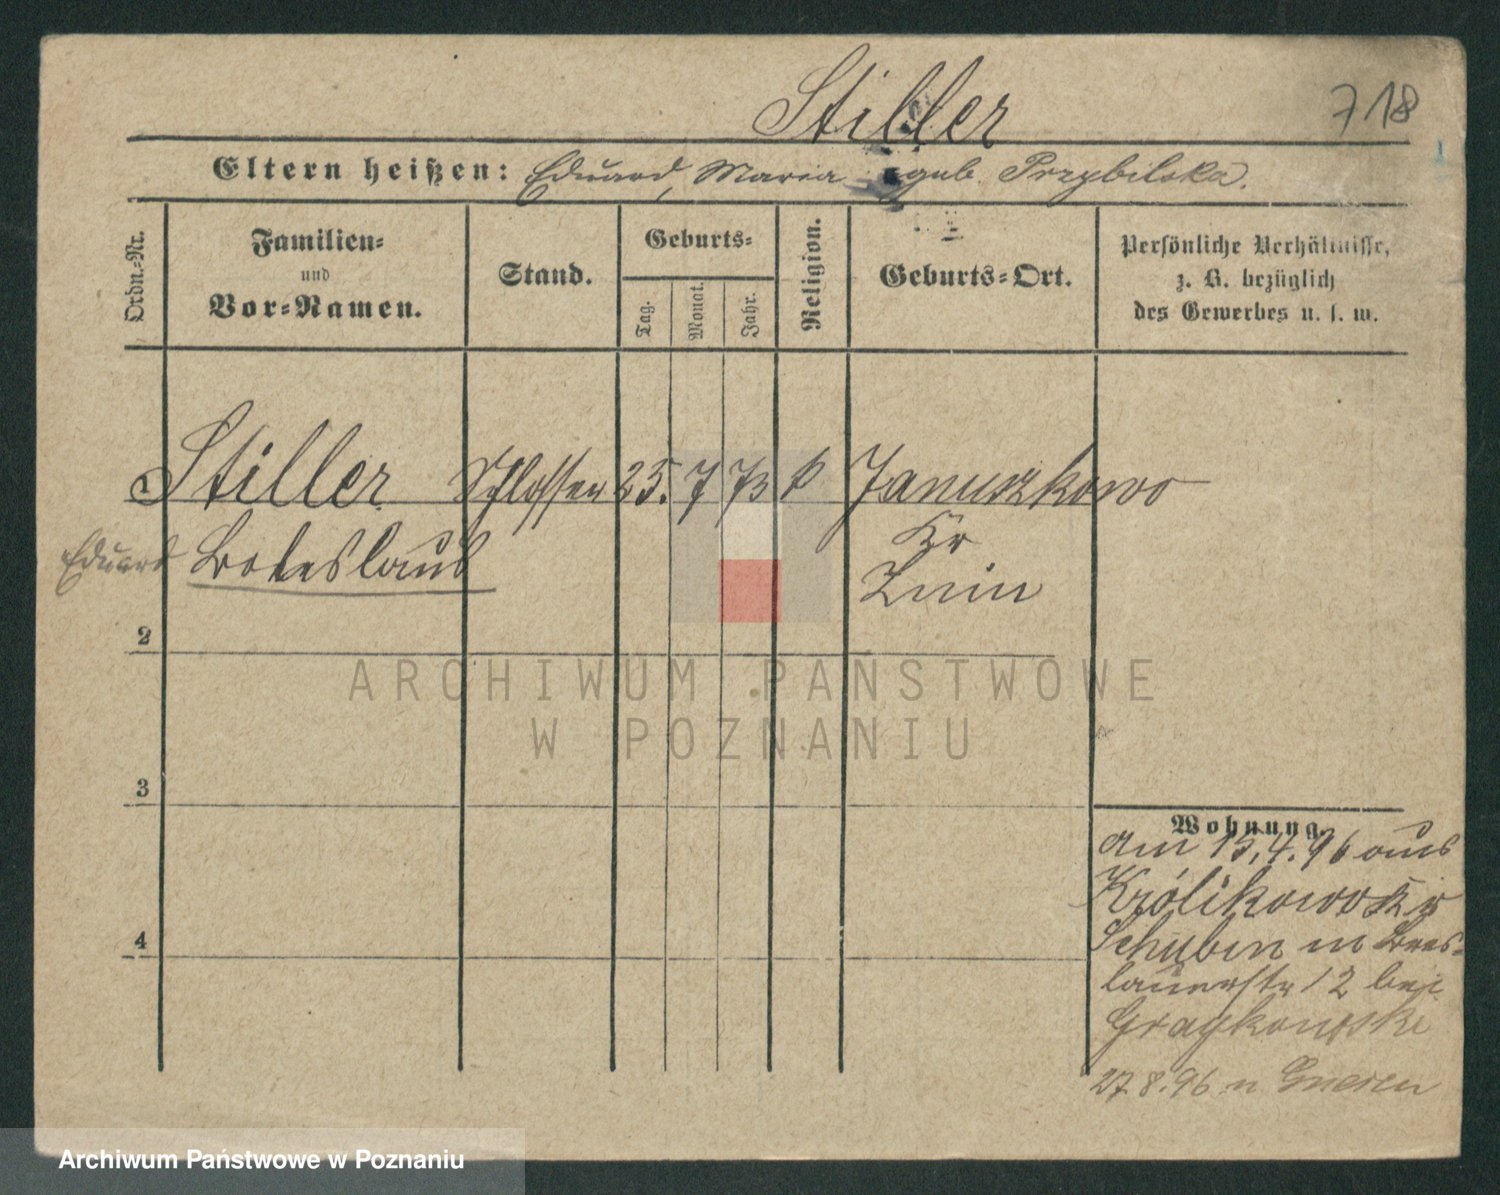 Stiller
718
Eltern heißen: Eduard, Maria geb. Przybilska.
Ordn.-Nr.
Familien-
und
Vor-Namen.
Stand.
Geburts-
Tag.
Monat.
Jahr.
Religion.
Geburts-Ort.
Persönliche Verhältnisse,
z. B. bezüglich
des Gewerbes u. s. w.
1 Stiller Schlosser 25. 7 73 k Januszkowo
Eduard Boleslaus Kr
Znin
2
ARCHIWUM PAŃSTWOWE
W POZNANIU
3
Wohnung.
am 15.4.96 aus
Królikowo Kr
4
Schubin in Bres-
lauerstr 12 bei
27.8.96 n Gnesen
Archiwum Państwowe w Poznaniu